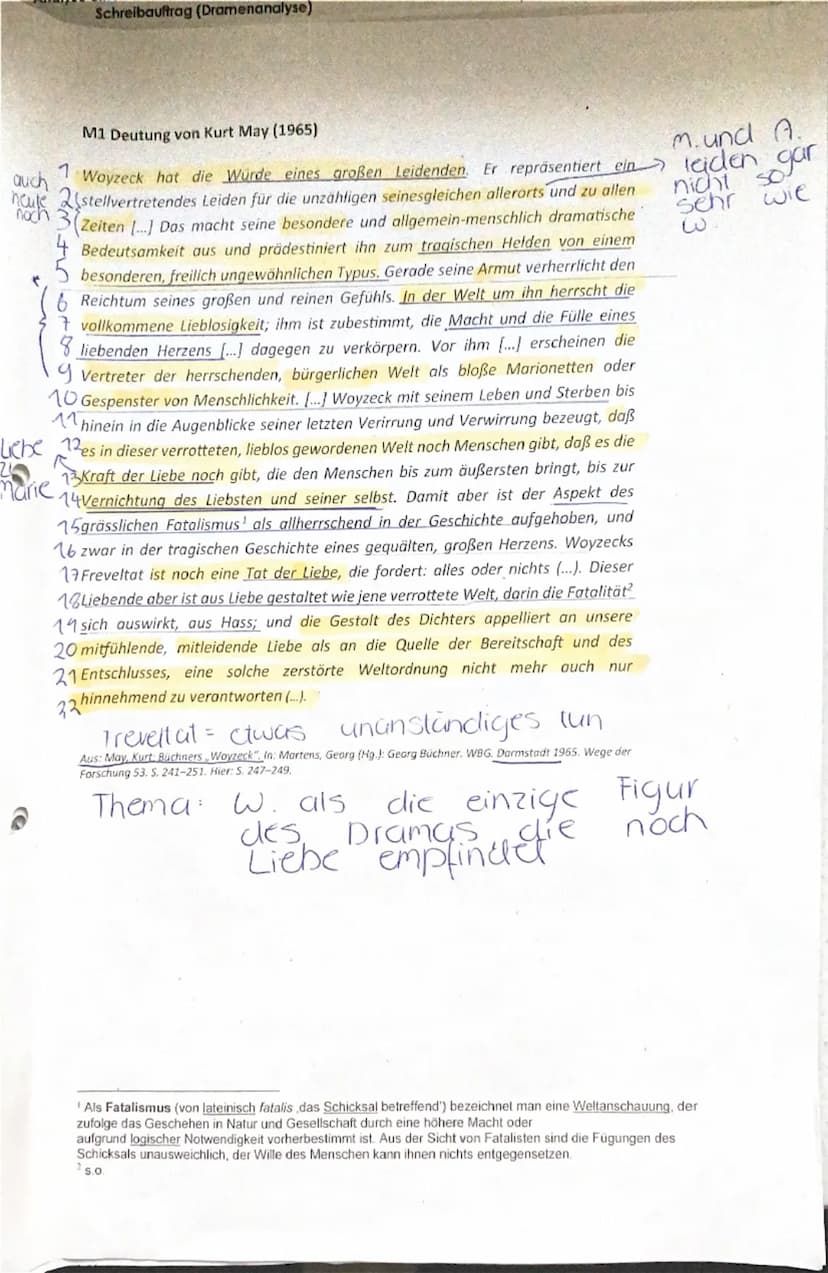 Schreibauftrag (Dramenanalyse)
M1 Deutung von Kurt May (1965)
M. und A.
leiden gar
nicht so
sehr wie
W.
auch
heute
noch
1 Woyzeck hat die Würde eines großen Leidenden. Er repräsentiert ein
2 stellvertretendes Leiden für die unzähligen seinesgleichen allerorts und zu allen
3 Zeiten [...] Das macht seine besondere und allgemein-menschlich dramatische
4 Bedeutsamkeit aus und prädestiniert ihn zum tragischen Helden von einem
5 besonderen, freilich ungewöhnlichen Typus. Gerade seine Armut verherrlicht den
6 Reichtum seines großen und reinen Gefühls. In der Welt um ihn herrscht die
7 vollkommene Lieblosigkeit; ihm ist zubestimmt, die Macht und die Fülle eines
8 liebenden Herzens [...] dagegen zu verkörpern. Vor ihm [...] erscheinen die
9 Vertreter der herrschenden, bürgerlichen Welt als bloße Marionetten oder
10 Gespenster von Menschlichkeit. [...] Woyzeck mit seinem Leben und Sterben bis
11 hinein in die Augenblicke seiner letzten Verirrung und Verwirrung bezeugt, daß
12 es in dieser verrotteten, lieblos gewordenen Welt noch Menschen gibt, daß es die
13 Kraft der Liebe noch gibt, die den Menschen bis zum äußersten bringt, bis zur
14 Vernichtung des Liebsten und seiner selbst. Damit aber ist der Aspekt des
15 grässlichen Fatalismus¹ als allherrschend in der Geschichte aufgehoben, und
16 zwar in der tragischen Geschichte eines gequälten, großen Herzens. Woyzecks
17 Freveltat ist noch eine Tat der Liebe, die fordert: alles oder nichts (...). Dieser
18 Liebende aber ist aus Liebe gestaltet wie jene verrottete Welt, darin die Fatalität²
19 sich auswirkt, aus Hass; und die Gestalt des Dichters appelliert an unsere
20 mitfühlende, mitleidende Liebe als an die Quelle der Bereitschaft und des
21 Entschlusses, eine solche zerstörte Weltordnung nicht mehr auch nur
22 hinnehmend zu verantworten (...).
Liebe
Marie
Freveltat = etwas unanständiges tun
Aus: May, Kurt. Büchners „Woyzeck“. In: Martens, Georg (Hg.): Georg Büchner. WBG. Darmstadt 1965. Wege der
Forschung 53. S. 241–251. Hier: S. 247–249.
Thema: W. als die einzige Figur
des Dramas die noch
Liebe empfindet
¹ Als Fatalismus (von lateinisch fatalis ‚das Schicksal betreffend') bezeichnet man eine Weltanschauung, der
zufolge das Geschehen in Natur und Gesellschaft durch eine höhere Macht oder
aufgrund logischer Notwendigkeit vorherbestimmt ist. Aus der Sicht von Fatalisten sind die Fügungen des
Schicksals unausweichlich, der Wille des Menschen kann ihnen nichts entgegensetzen.
² s.o.